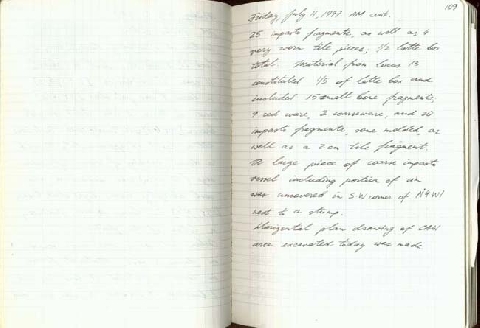 109
Friday, July 11, 1997 AM cont.
25 impasto fragments, as well as 4
very worn tile pieces, 1/2 latte box
total. Material from Locus 13
constituted 1/2 of latte box and
included 15 small bone fragments,
9 red ware, 2 coarseware, and 20
impasto fragments, one molded as
well as a 2 cm tile fragment.
large piece of coarse impasto
vessel including portion of
was uncovered in SW corner of
next to a stump.
Horizontal plan drawing of
area excavated today was made